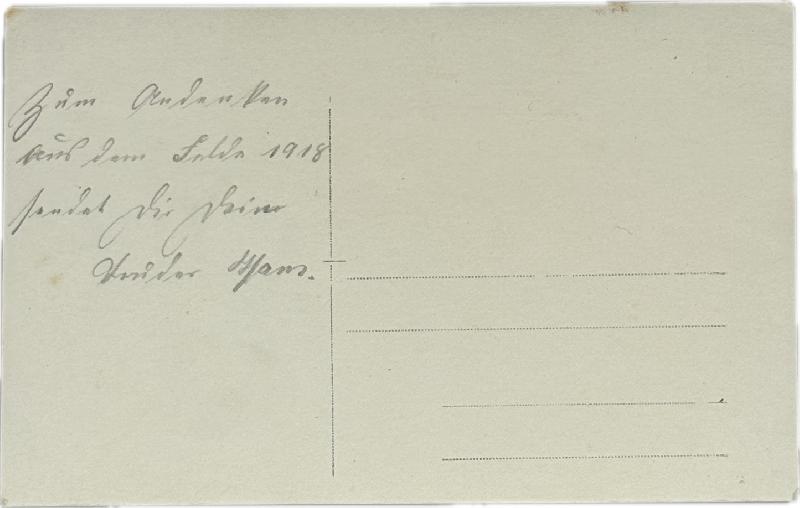 Zum Andenken
aus dem Felde 1918
sendet Dir Dein
Bruder Hans.